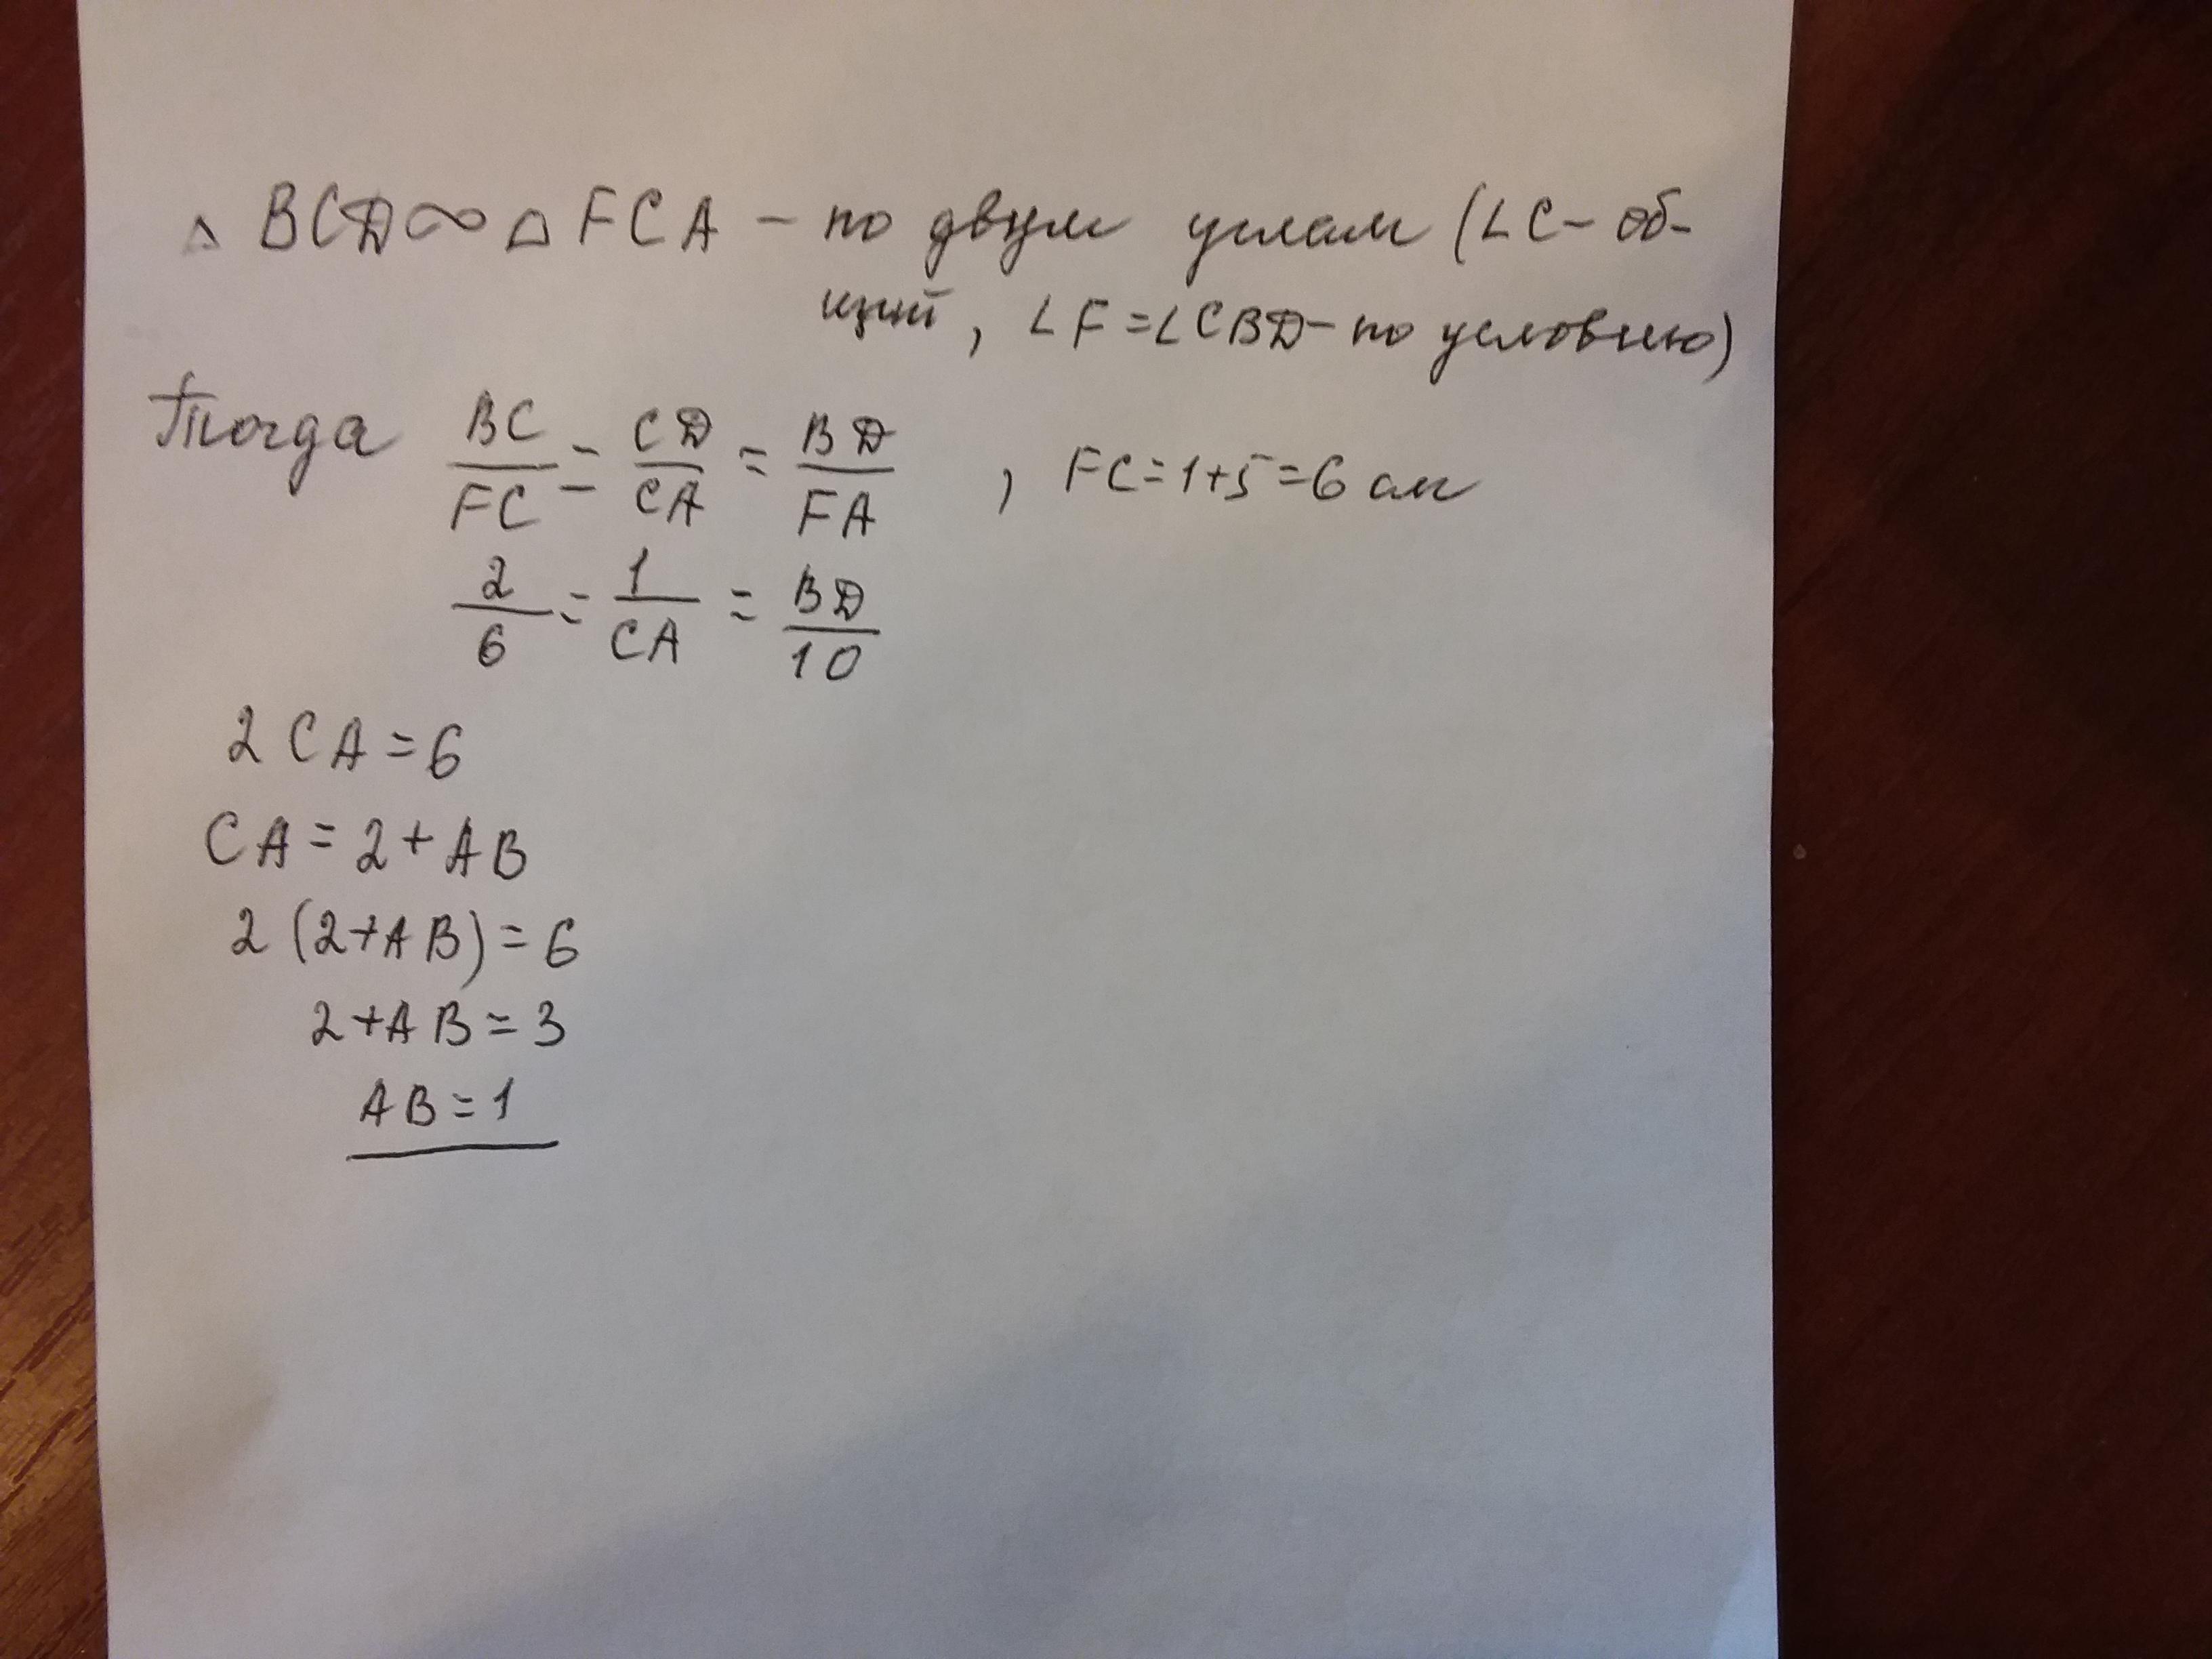 △ BCD ∞ △ FCA – по двум углам (∠C – об-
щий, ∠F = ∠CBD – по условию)
Тогда BC/FC = CD/CA = BD/FA , FC = 1+5 = 6 см
2/6 = 1/CA = BD/10
2 CA = 6
CA = 2 + AB
2 (2+AB) = 6
2 + AB = 3
AB = 1